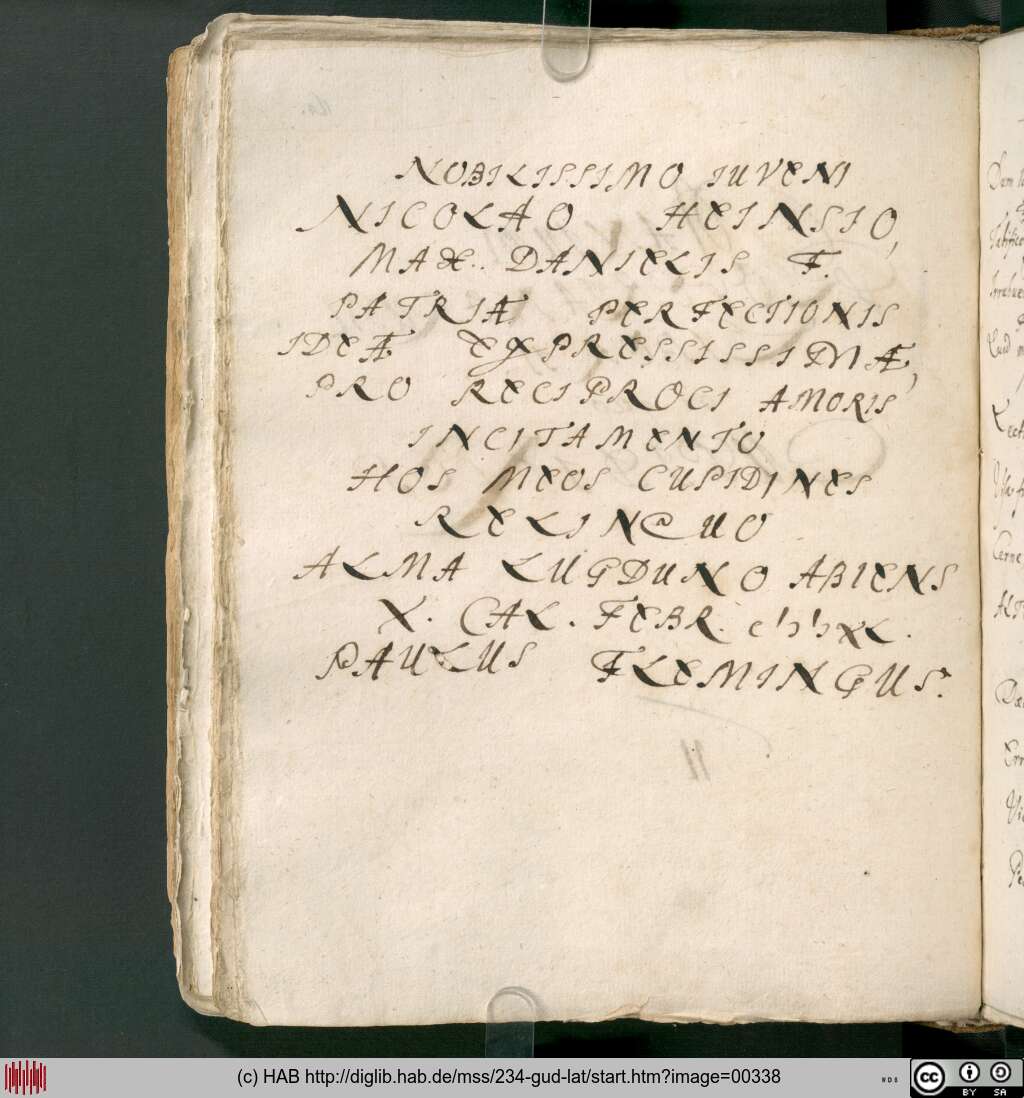 NOBILISSIMO IUVENI
NICOLAO HEINSIO,
MAX. DANIELIS F.
PATRIÆ PERFECTIONIS
IDEÆ EXPRESSISSIMÆ,
PRO RECIPROCI AMORIS
INCITAMENTO
HOS MEOS CUPIDINES
RELINQUO
ALMA LUGDUNO ABIENS
X. CAL. FEBR. cIↃIↃXL.
PAULUS FLEMINGUS.
(c) HAB http://diglib.hab.de/mss/234-gud-lat/start.htm?image=00338
WDB
cc BY SA